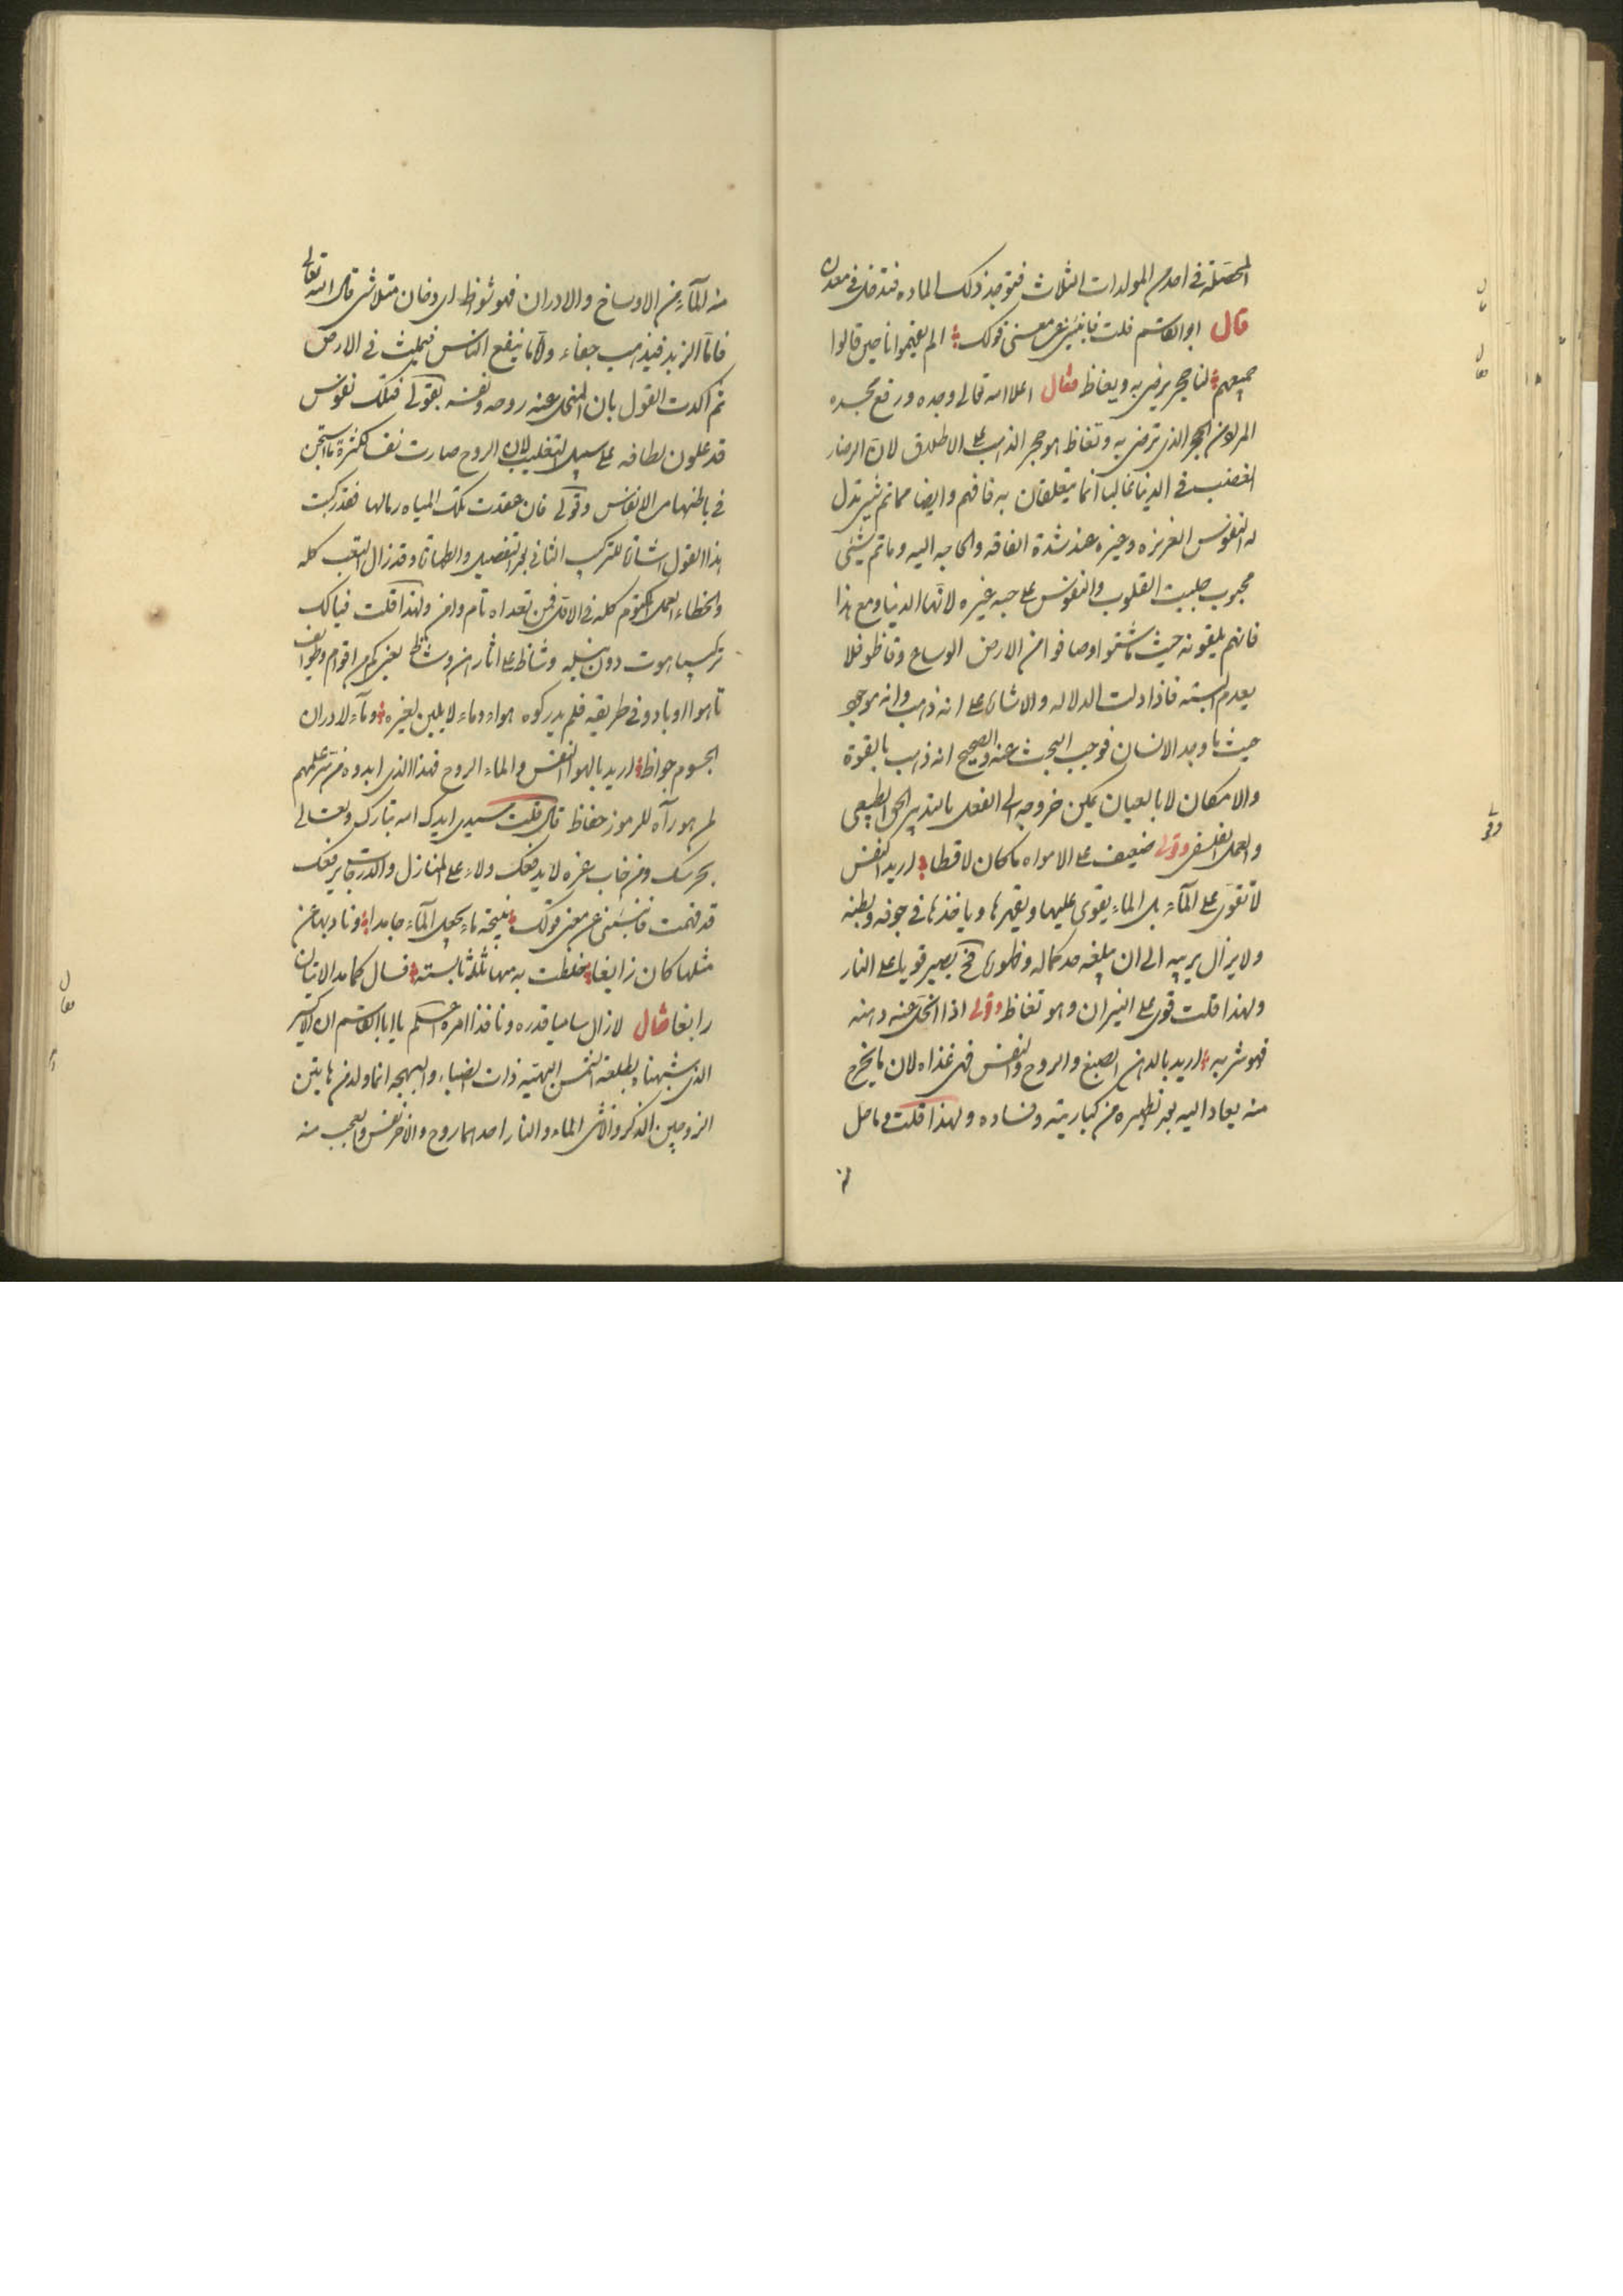 المحصلة في احدى المولدات الثلاث فتوخذ ذلك الماده فتدخل في معدن
قال ابو القاسم قلت فانبئني عن معنى قولك الم يفهموا ناحين قالوا
جميعهم لنا حجر يرضى به ويغاظ فقال اعلا الله تعالى وجده ورفع مجده
المراد من الحجر الذي ترضى به وتغاظ هو حجر الذهب على الاطلاق لان الرضا و
الغضب في الدنيا غالبا انما يتعلقان به فافهم وايضا مما ثم شيء تذل
له النفوس العزيزه وغيره عند شدة الفاقه والحاجه اليه وما ثم شيء
محبوب جلبت القلوب والنفوس على حبه غيره لانها الدنيا ومع هذا
فانهم يلقونه حيث ما شتوا وصافوا من الارض الوساع وقاظو فلا
يعدم البته فاذا دلت الدلاله والاشارة على انه ذهب وانه موجود
حيث ما وجد الانسان فوجب البحث عنه والصحيح انه ذهب بالقوة
والامكان لا بالعيان يمكن خروجه الى الفعل بالتدبير الحق الطبيعي
والعمل الفلسفي وقولى ضعيف على الامواه ما كان لاقطا اريد النفس
لا تقوى على الماء بل الماء يقوى عليها ويقهرها وياخذها في جوفه وبطنه
ولا يزال يربيه الى ان يبلغه حد كماله وظهوره فح يصير قويا على النار
ولهذا قلت قوى على النيران وهو تغاظ وقولى اذا انحل عنه دهنه
فهو شربه اريد بالدهن الصبغ والروح والنفس فهي غذاه لان ما يخرج
منه يعاد اليه بعد تطهيره من كباريته وفساده ولهذا قلت وما حل
منه الماء من الاوساخ والادران فهو شواظ اى دخان متلاشى قال الله تعالى
فاما الزبد فيذهب جفاء واما ما ينفع الناس فيمكث في الارض
ثم اكدت القول بان المنحل عنه روحه ونفسه بقولى فتلك نفوس
قد علون لطافه على سبيل التغليب لان الروح صارت نفسا لكثرة ما استجن
في باطنها من الانفاس وقولى فان عقدت تلك المياه رمالها فقد ركبت
هذا القول اشارة للتركيب الثاني بعد التفصيل والطهارة وقد زال التعب كله
والخطاء العمل المكتوم كله في الاول فمن تعداه تام وامن ولهذا قلت فيالك
تركيبا هوت دون نيله وشاظ على اثارهن وشاظ يعنى كم من اقوام وطوائف
تاهوا او بادو في طريقه فلم يدركوه هواء وماء لا يلين لغيره وماء لادران
الجسوم جواظ اريد بالهوا النفس والماء الروح فهذا الذي ابدوه من سر علمهم
لمن هو رآه للرموز حفاظ قال قلت سيدي ايدك الله تبارك وتعالى
بحرسك ومن خاب غره لا يدفعك ولاء على المنازل والدرجات يرفعك
قد فهمت فانبئني عن معنى قولك نفيحة ماء يجعل الماء جامدا ونادبها عن
مثلها كان زايغا خلطت به منها ثلثا ثابسته فسال كما مد الاتيان
رابغا فقال لا زال ساميا قدره ونافذا امره اعلم يا ابا القاسم ان الاكسير
الذي شبهناه بطلعة الشمس البهية ذات الضياء والبهجه انما ولد من هاتين
الزوجين الذكر والانثى الماء والنار احدهما روح والاخر نفس والعجب منه